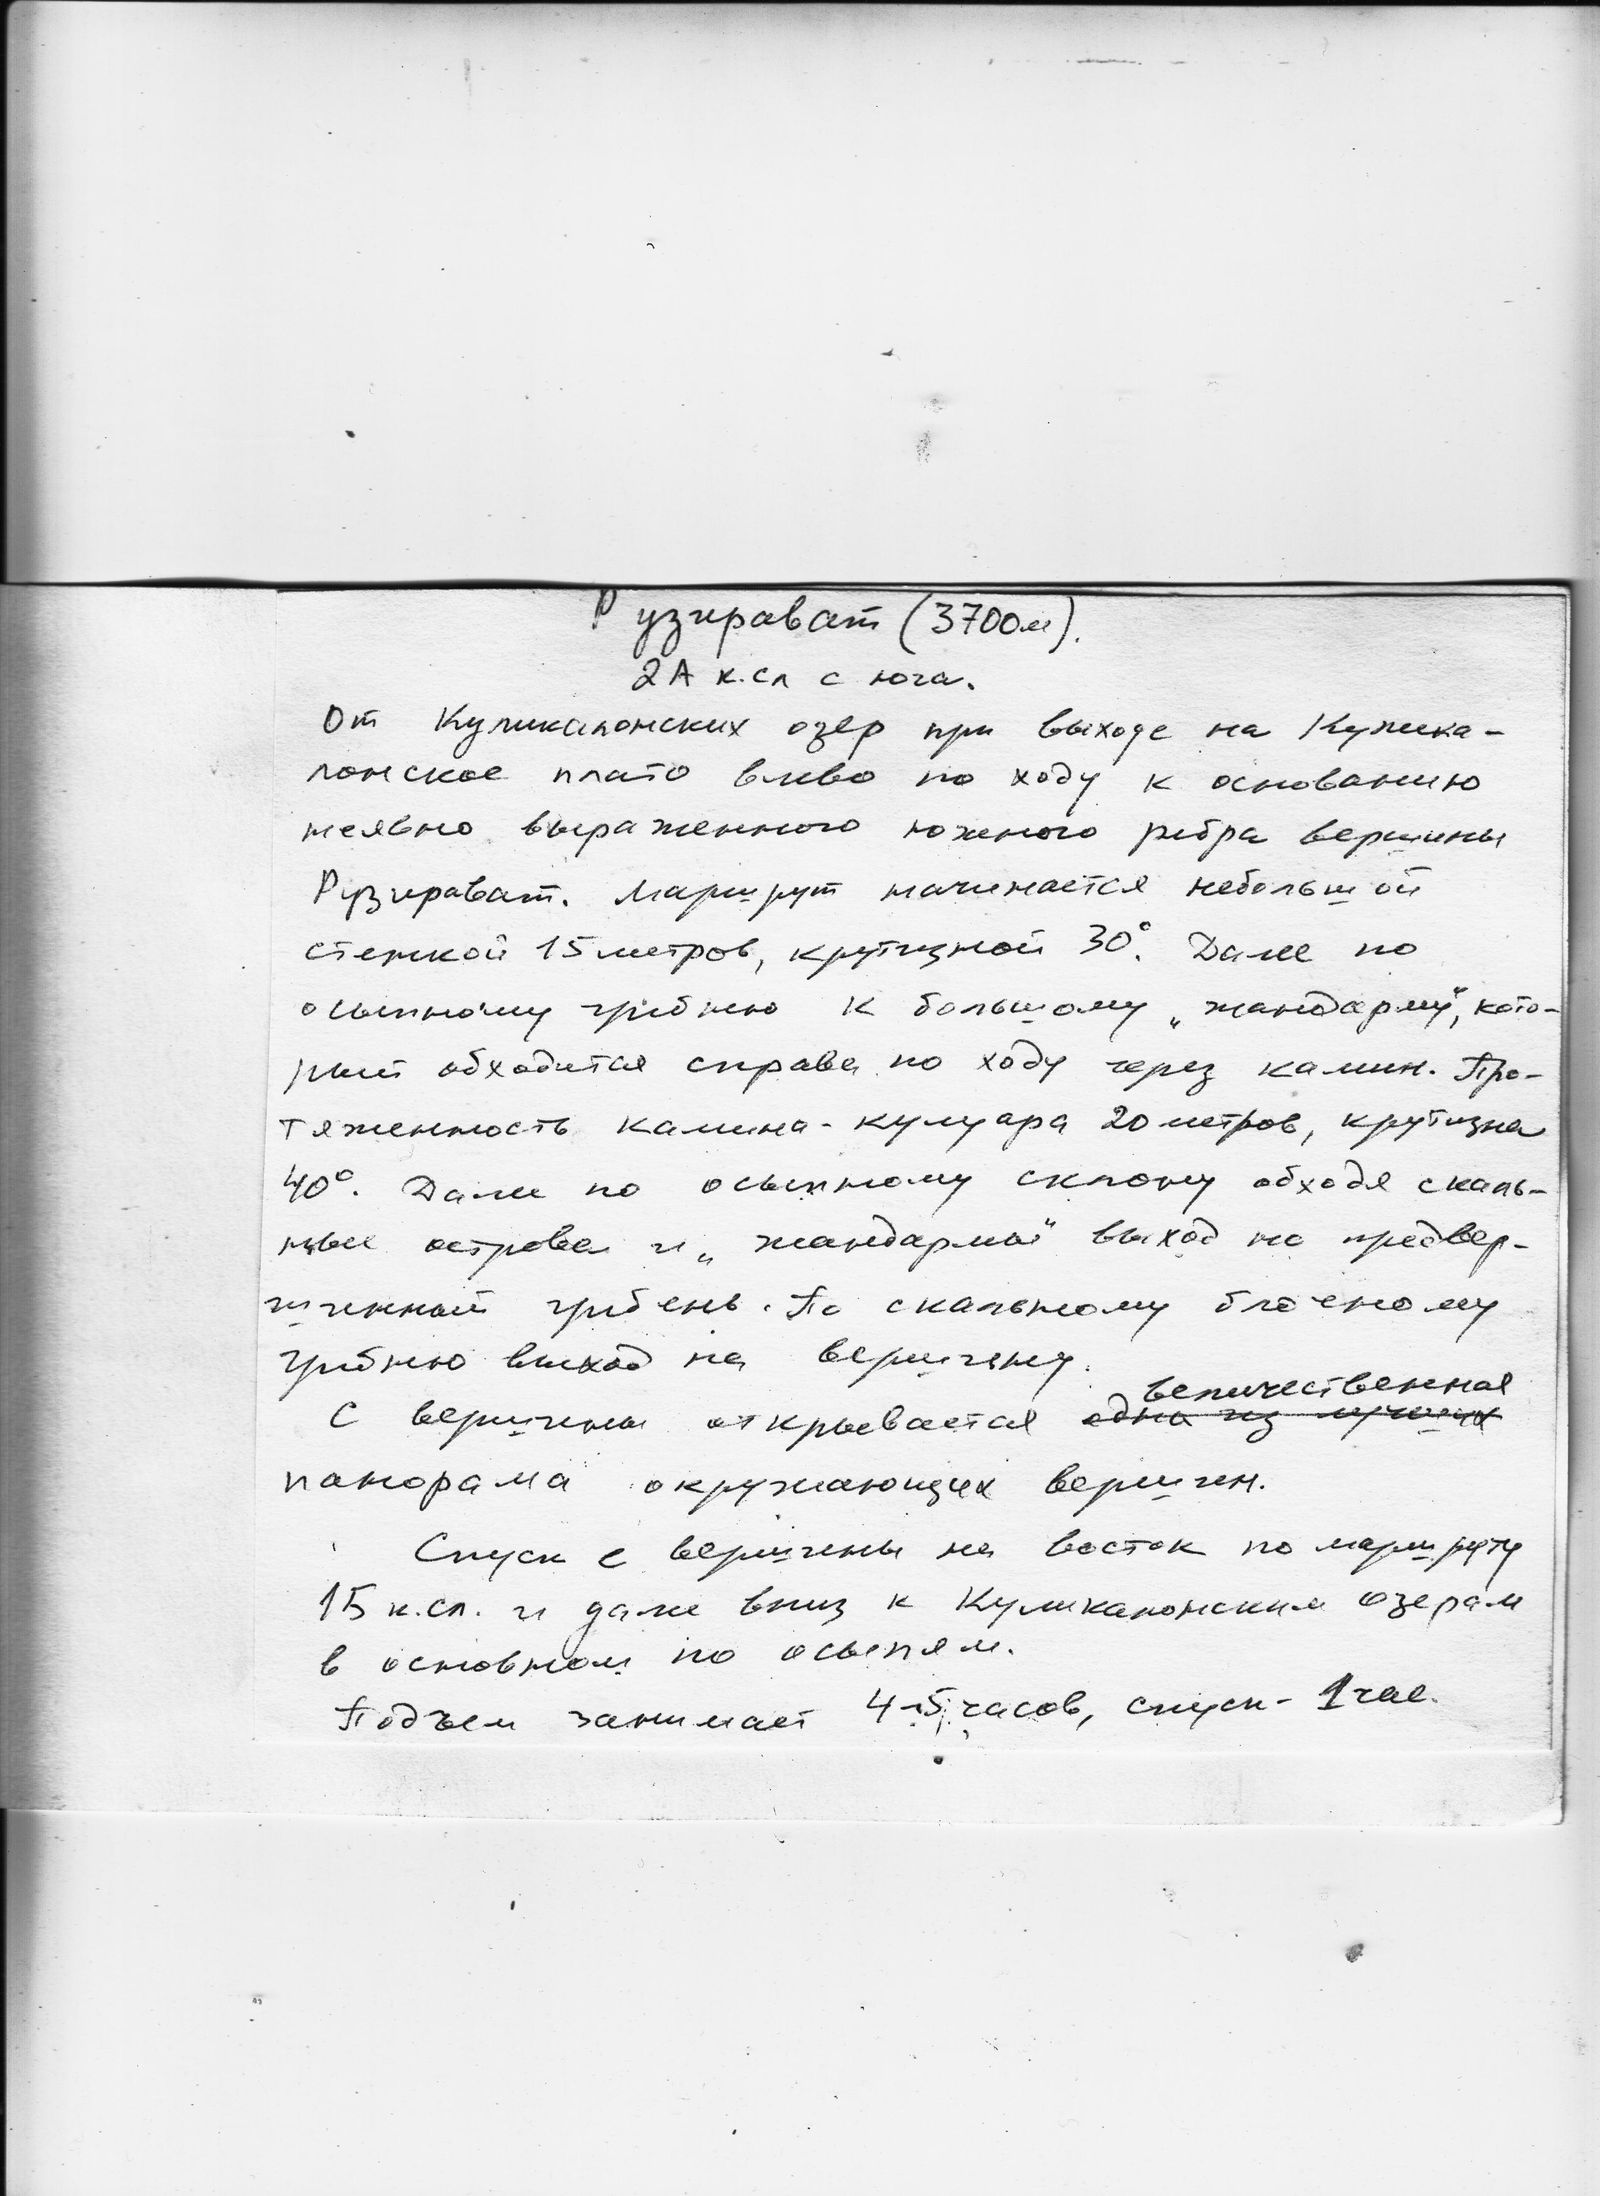 Рузирават (3700м).
2А к.сл с юга.
От Куликалонских озер при выходе на Кулика-
лонское плато влево по ходу к основанию
неявно выраженного южного ребра вершины
Рузирават. Маршрут начинается небольшой
стенкой 15 метров, крутизной 30°. Далее по
осыпному гребню к большому „жандарму“, кото-
рый обходится справа по ходу через камин. Про-
тяженность камина-кулуара 20 метров, крутизна
40°. Далее по осыпному склону обходя скаль-
ные острова и „жандармы“ выход на предвер-
шинный гребень. По скальному блочному
гребню выход на вершину.
величественная
С вершины открывается одна из лучших
панорама окружающих вершин.
Спуск с вершины на восток по маршруту
1Б к.сл. и далее вниз к Куликалонским озерам
в основном по осыпям.
Подъем занимает 4-5 часов, спуск - 1 час.